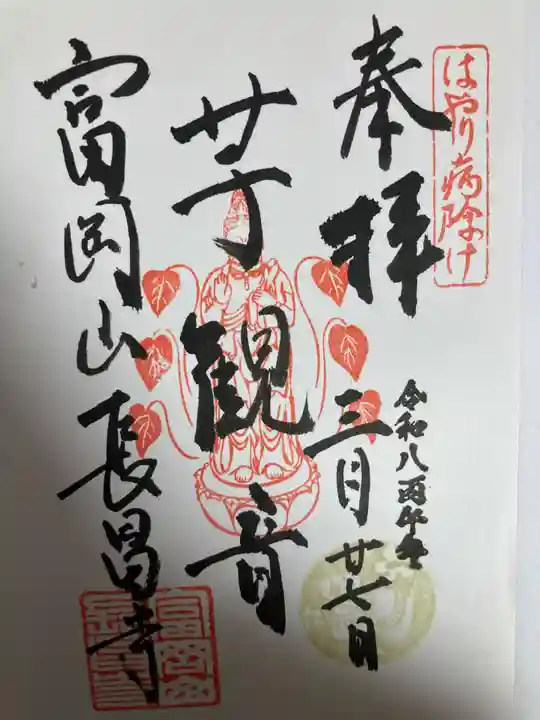 はやり病除け
奉拝
令和八丙午年
三月廿七日
芋観音
富岡山長昌寺